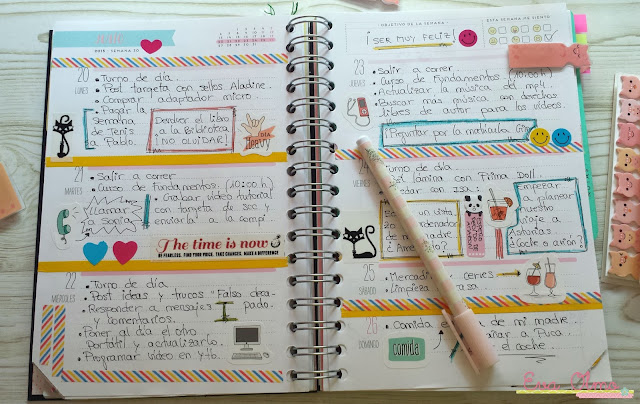 2018 - SEMANA 20
20
LUNES
• Turno de día...
• Post tarjeta con sellos Aladine.
• Comprar adaptador micro...
• Pagar la
Semana
de Tenis
a Pablo.
Devolver el libro
a la Biblioteca
¡NO OLVIDAR!
Heavy
21
MARTES
• Salir a correr...
• Curso de fundamentos. (10:00 h.)
• Grabar video tutorial
con tarjeta de sellos
enviarla a la compi.
¡Llamar
a Sonia
The time is now
BE FEARLESS. FIND YOUR VOICE. TAKE CHANCES. MAKE A DIFFERENCE
22
MIÉRCOLES
• Turno de día...
• Post ideas y trucos "Falso
• Responder a mensajes
y comentarios...
• Poner al día el otro
Portátil y actualizarlo.
• Programar video en
OBJETIVO DE LA SEMANA
¡SER MUY FELIZ!
ESTA SEMANA ME SIENTO
23
JUEVES
• Salir a correr...
• Curso de Fundamentos... (10:00h)
• Actualizar la música del mp4
• Buscar mas música con derechos
libres de autor para los videos.
Preguntar por la matrícula
VIERNES
Turno de día...
lámina con Prima Doll.
Quedar con Isa
un vistazo
ordenador
madre
Empezar
a planear
nuestro
viaje a
Asturias..
¿Coche o avión?
25
SÁBADO
• Mercadillo y
• Limpieza
26
DOMINGO
• Comida de mi madre
a Puca...
el coche...
comida
Eva